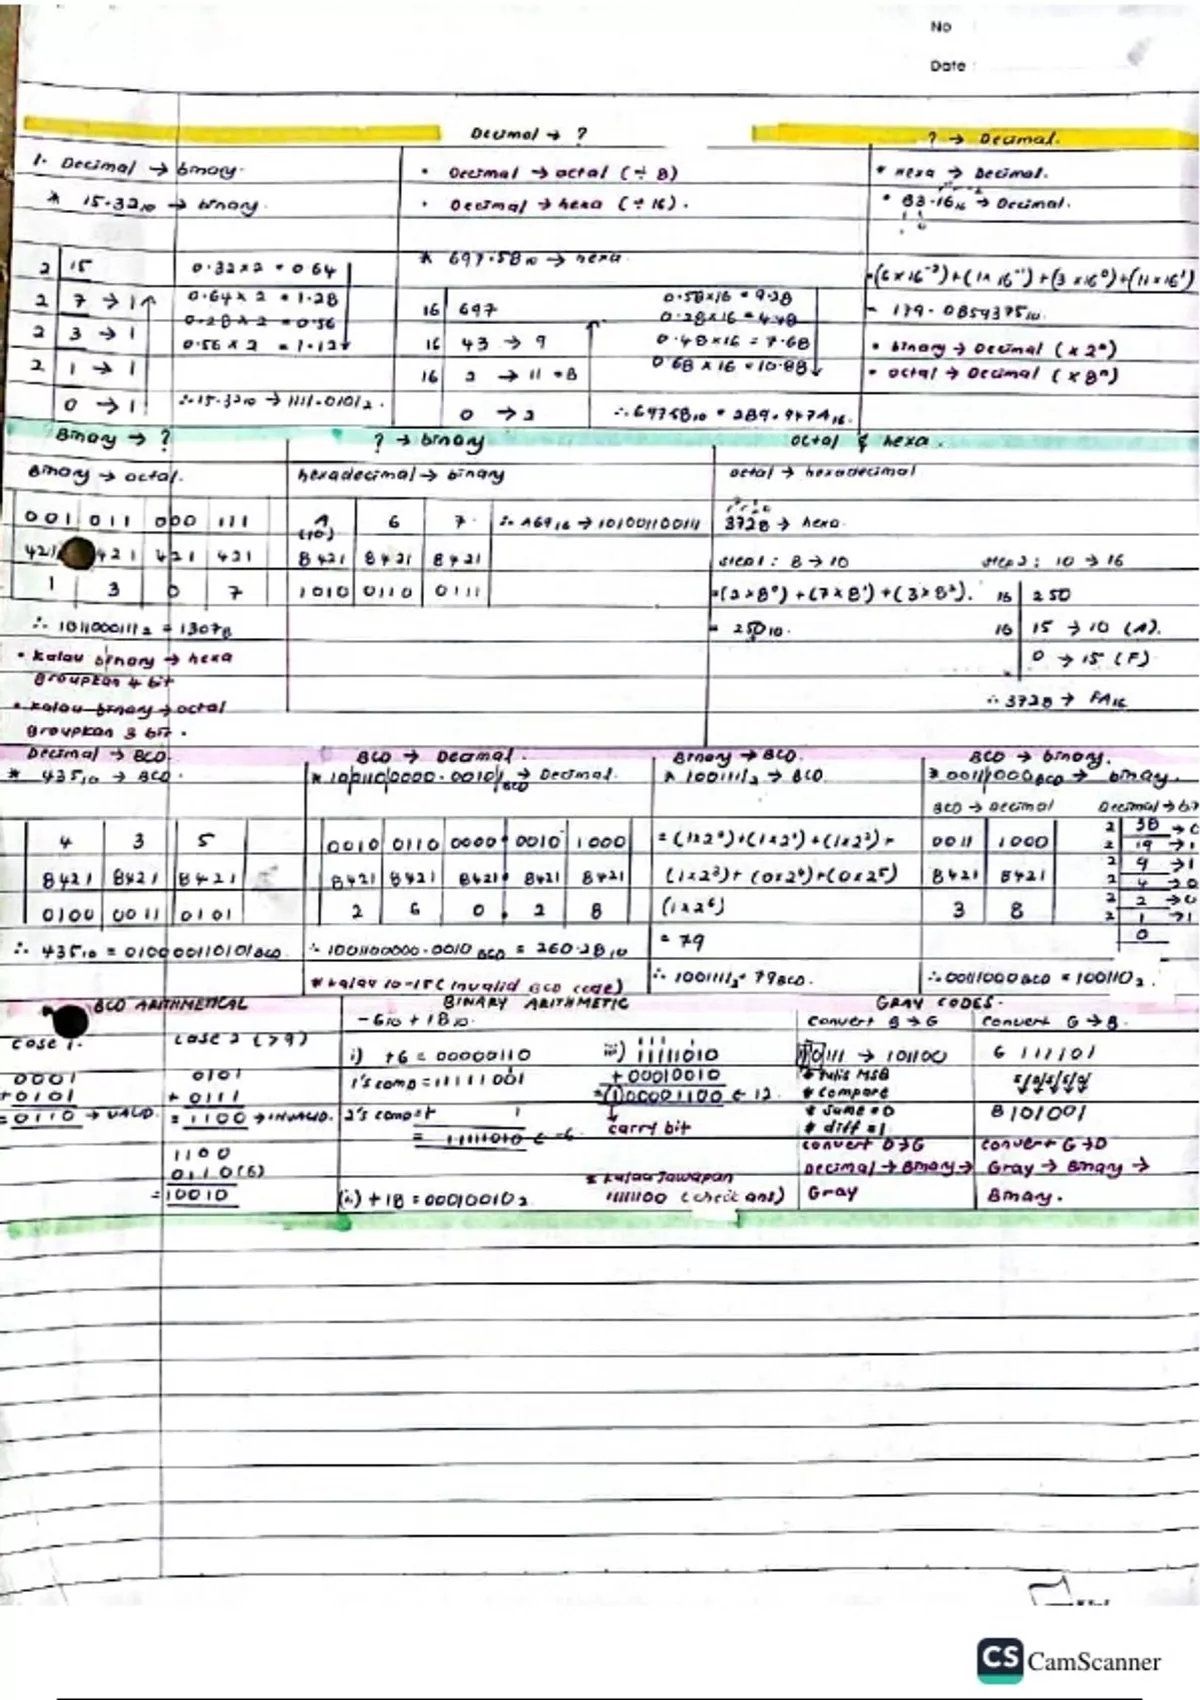 No
Date
Decimal → ?
? → Decimal.
1. Decimal → binary.
* 15.32₁₀ → binary.
2 | 15
2 | 7 → 1
2 | 3 → 1
2 | 1 → 1
0 → 1
0.32 x 2 = 0.64
0.64 x 2 = 1.28
0.28 x 2 = 0.56
0.56 x 2 = 1.12
∴ 15.32₁₀ → 1111.0101₂.
• Decimal → octal (÷ 8)
• Decimal → hexa (÷ 16).
* 697.58₁₀ → hexa
16 | 697
16 | 43 → 9
16 | 2 → 11 = B
0 → 2
0.58x16 = 9.28
0.28x16 = 4.48
0.48x16 = 7.68
0.68 x 16 = 10.88
∴ 697.58₁₀ = 2B9.947A₁₆.
• Hexa → Decimal.
• B3.16₁₆ → Decimal.
=(6x16⁻²)+(1x16⁻¹)+(3x16⁰)+(11x16¹)
= 179.0859375₁₀.
• binary → Decimal (x 2ⁿ)
• octal → Decimal (x 8ⁿ)
Binary → ?
? → binary
octal & hexa.
Binary → octal.
001 | 011 | 000 | 111
421 | 421 | 421 | 421
1 | 3 | 0 | 7
∴ 1011000111₂ = 1307₈
• kalau binary → hexa
groupkan 4 bit
• kalau binary → octal
groupkan 3 bit.
hexadecimal → binary
A (10) | 6 | 7
8421 | 8421 | 8421
1010 | 0110 | 0111
∴ A67₁₆ → 101001100111
octal → hexadecimal
372₈ → hexa.
step 1: 8 → 10
=(2x8⁰)+(7x8¹)+(3x8²).
= 250₁₀.
step 2: 10 → 16
16 | 250
16 | 15 → 10 (A).
0 → 15 (F)
∴ 372₈ → FA₁₆
Decimal → BCD.
* 435₁₀ → BCD.
4 | 3 | 5
8421 | 8421 | 8421
0100 | 0011 | 0101
∴ 435₁₀ = 010000110101 BCD.
BCD → Decimal.
→ Decimal.
0010 | 0110 | 0000 . 0010 | 1000
8421 | 8421 | 8421 . 8421 | 8421
2 | 6 | 0 . 2 | 8
∴ 1001100000.0010 BCD = 260.28₁₀
* kalau 10-15 (invalid BCD code)
Binary → BCD.
* 1001111₂ → BCD.
= (1x2⁰)+(1x2¹)+(1x2²)+
(1x2³)+(0x2⁴)+(0x2⁵)
(1x2⁶)
= 79
∴ 1001111₂ = 79BCD.
BCD → binary.
* 00111000 BCD → binary.
BCD → Decimal
0011 | 1000
8421 | 8421
3 | 8
Decimal → bi
2 | 38 → 0
2 | 19 → 1
2 | 9 → 1
2 | 4 → 0
2 | 2 → 0
2 | 1 → 1
0
∴ 00111000 BCD = 100110₂.
BCD ARITHMETICAL
Case 1.
0001
+0101
=0110 → VALID.
Case 2 (>9)
0101
+ 0111
= 1100 → INVALID.
1100
0110 (6)
= 10010
BINARY ARITHMETIC
-6₁₀ + 18₁₀.
i) +6 = 00000110
1's comp = 11111001
2's comp = + 1
= 11111010 ← -6
ii) +18 = 00010010₂
iii) 11111010
+ 00010010
= (1)00001100 ← 12
carry bit
* kalau jawapan
1111100 (check ans)
GRAY CODES.
Convert B → G
110111 → 101100
* tulis MSB
* compare
* same = 0
* diff = 1
convert D → G
Decimal → Binary →
Gray
Convert G → B.
G 111101
B 101001
convert G → D
Gray → Binary →
Binary.
CS CamScanner